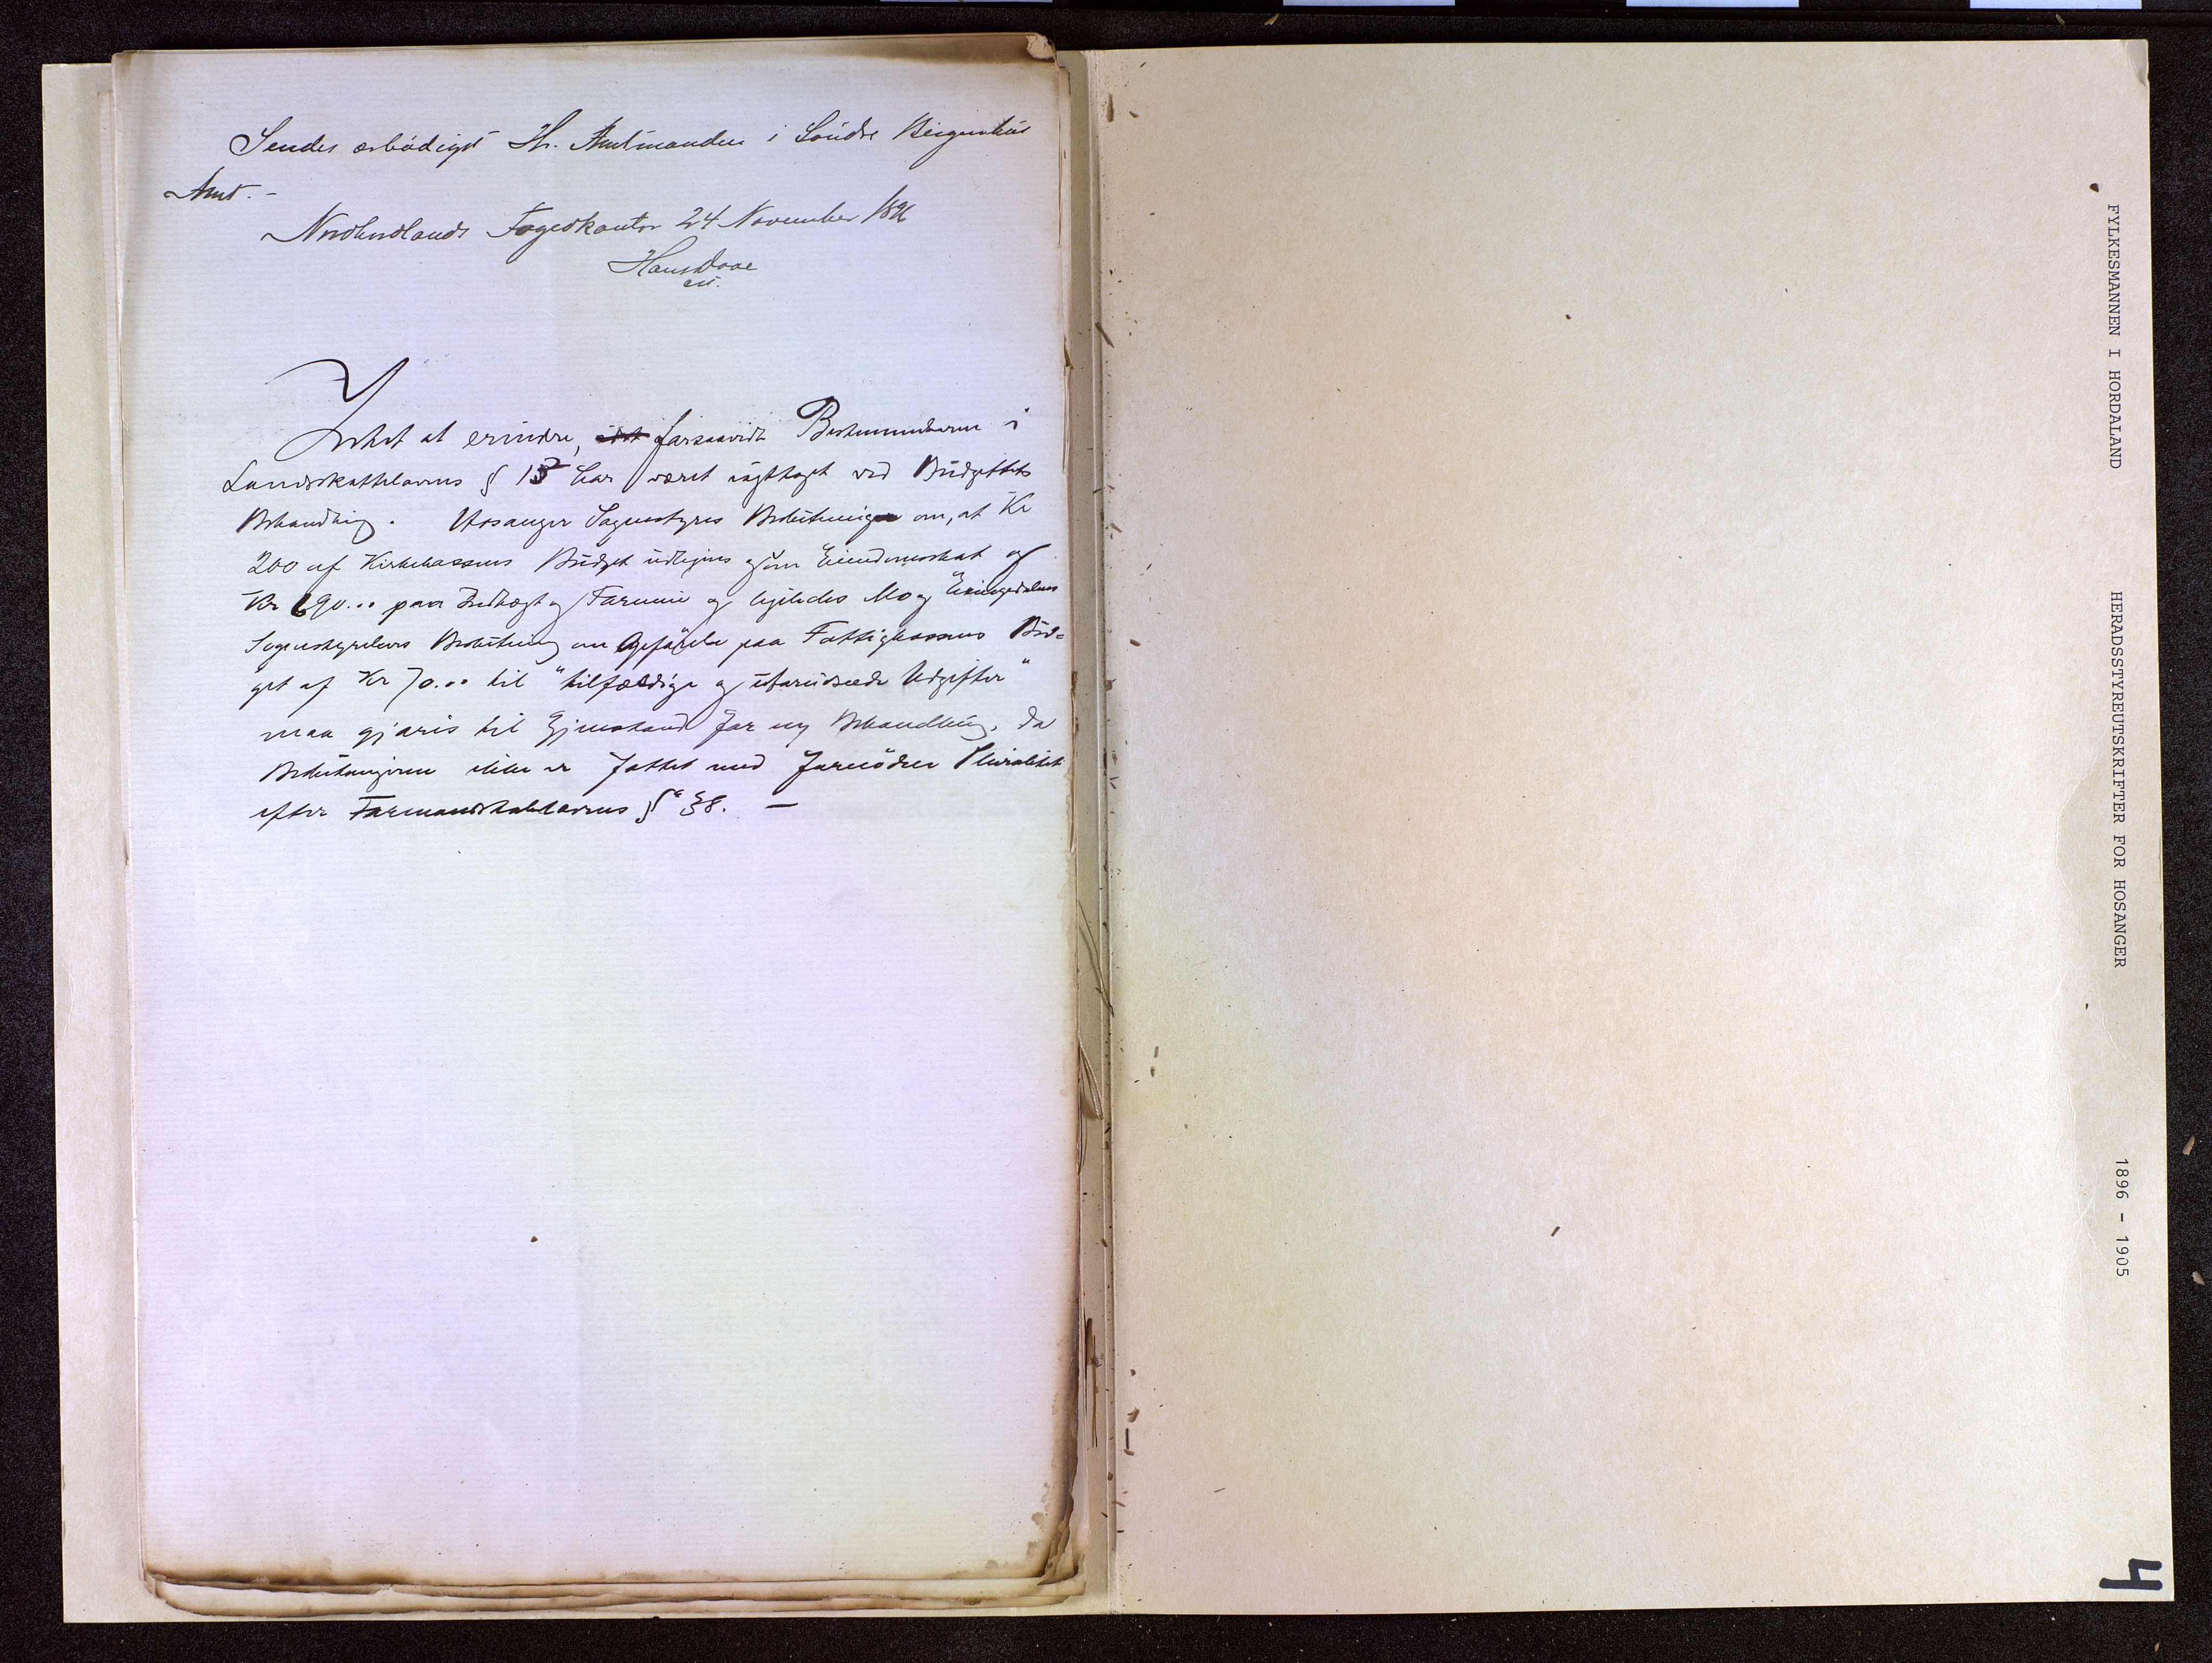 Sendes ærbödigst Hr. Amtmanden i Söndre Bergenhus
Amt. -
Nordhordlands Fogedkontor 24 November 1896
Hans Daae
cst.
Intet at erindre, forsaavidt Bestemmelserne i
Landsskattelovens § 13 har været iagttaget ved Budgettets
Behandling. Hosanger Sognestyres Beslutninger om, at Kr
200 af Kirkekassens Budget udlignes som Eiendomsskat og
Kr 690.00 paa Indtægt og Formue og ligeledes Mo og Eksingedalens
Sognestyrelses Beslutning om Opförelse paa Fattigkassens Bud=
get af Kr 70.00 til "tilfældige og uforudseede Udgifter"
maa gjøres til Gjenstand for ny Behandling, da
Beslutningerne ikke er fattet med fornöden Pluralitet
efter Formandskabslovens § 38. —
FYLKESMANNEN I HORDALAND
HERADSSTYREUTSKRIFTER FOR HOSANGER
1896 - 1905
4